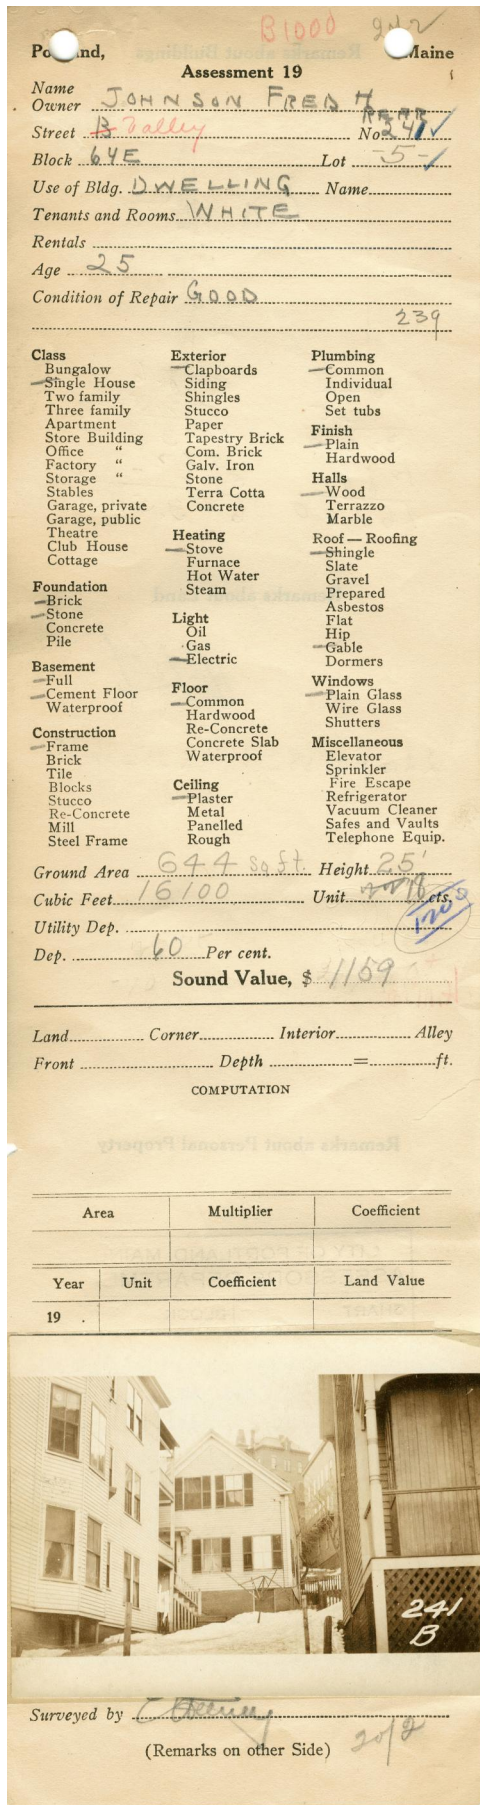 B1000 242
Po nd, Maine
Assessment 19
Name
Owner JOHNSON FRED H
REAR
Street B Valley No 241
Block 64E Lot -5-
Use of Bldg. DWELLING Name
Tenants and Rooms WHITE
Rentals
Age 25
Condition of Repair GOOD
239
Class
Bungalow
Single House
Two family
Three family
Apartment
Store Building
Office “
Factory “
Storage “
Stables
Garage, private
Garage, public
Theatre
Club House
Cottage
Foundation
Brick
Stone
Concrete
Pile
Basement
Full
Cement Floor
Waterproof
Construction
Frame
Brick
Tile
Blocks
Stucco
Re-Concrete
Mill
Steel Frame
Exterior
Clapboards
Siding
Shingles
Stucco
Paper
Tapestry Brick
Com. Brick
Galv. Iron
Stone
Terra Cotta
Concrete
Heating
Stove
Furnace
Hot Water
Steam
Light
Oil
Gas
Electric
Floor
Common
Hardwood
Re-Concrete
Concrete Slab
Waterproof
Ceiling
Plaster
Metal
Panelled
Rough
Plumbing
Common
Individual
Open
Set tubs
Finish
Plain
Hardwood
Halls
Wood
Terrazzo
Marble
Roof — Roofing
Shingle
Slate
Gravel
Prepared
Asbestos
Flat
Hip
Gable
Dormers
Windows
Plain Glass
Wire Glass
Shutters
Miscellaneous
Elevator
Sprinkler
Fire Escape
Refrigerator
Vacuum Cleaner
Safes and Vaults
Telephone Equip.
Ground Area 644 sq ft. Height 25'
Cubic Feet 16100 Unit 18 cts.
1200
Utility Dep.
Dep. 60 Per cent.
Sound Value, $ 1159
Land Corner Interior Alley
Front Depth = ft.
COMPUTATION
Area Multiplier Coefficient
Year Unit Coefficient Land Value
19 .
241
B
Surveyed by
(Remarks on other Side) 20/2